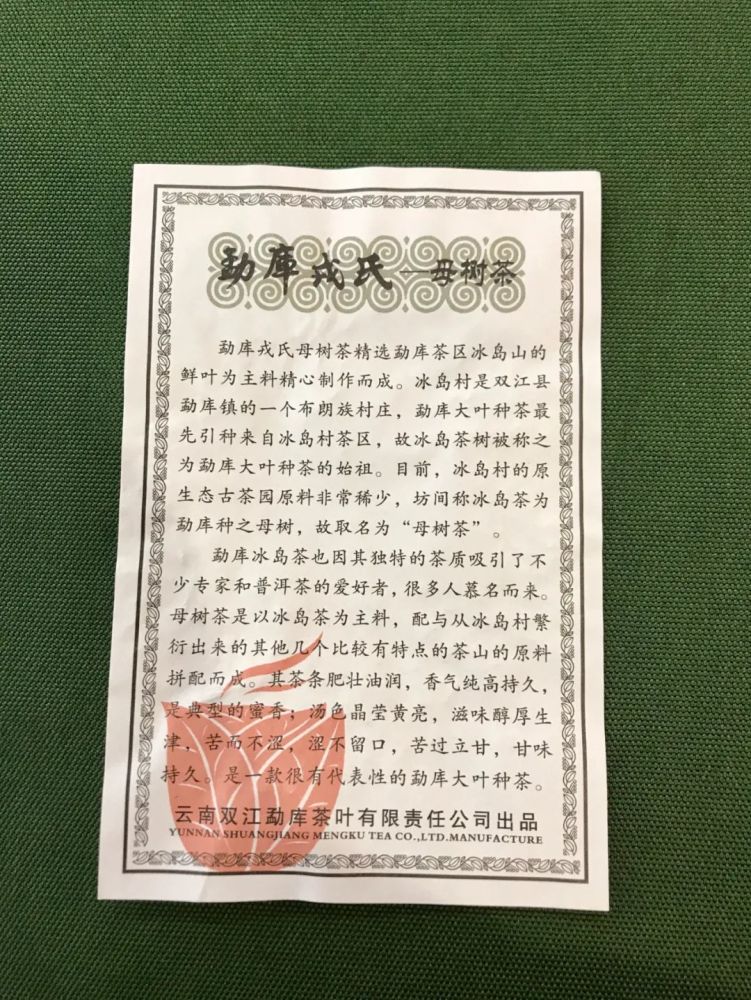 勐库戎氏—母树茶
勐库戎氏母树茶精选勐库茶区冰岛山的
鲜叶为主料精心制作而成。冰岛村是双江县
勐库镇的一个布朗族村庄，勐库大叶种茶最
先引种来自冰岛村茶区，故冰岛茶树被称之
为勐库大叶种茶的始祖。目前，冰岛村的原
生态古茶园原料非常稀少，坊间称冰岛茶为
勐库种之母树，故取名为“母树茶”。
勐库冰岛茶也因其独特的茶质吸引了不
少专家和普洱茶的爱好者，很多人慕名而来。
母树茶是以冰岛茶为主料，配与从冰岛村繁
衍出来的其他几个比较有特点的茶山的原料
拼配而成。其茶条肥壮油润，香气纯高持久，
是典型的蜜香；汤色晶莹黄亮，滋味醇厚生
津，苦而不涩，涩不留口，苦过立甘，甘味
持久。是一款很有代表性的勐库大叶种茶。
云南双江勐库茶叶有限责任公司出品
YUNNAN SHUANGJIANG MENGKU TEA CO.,LTD.MANUFACTURE